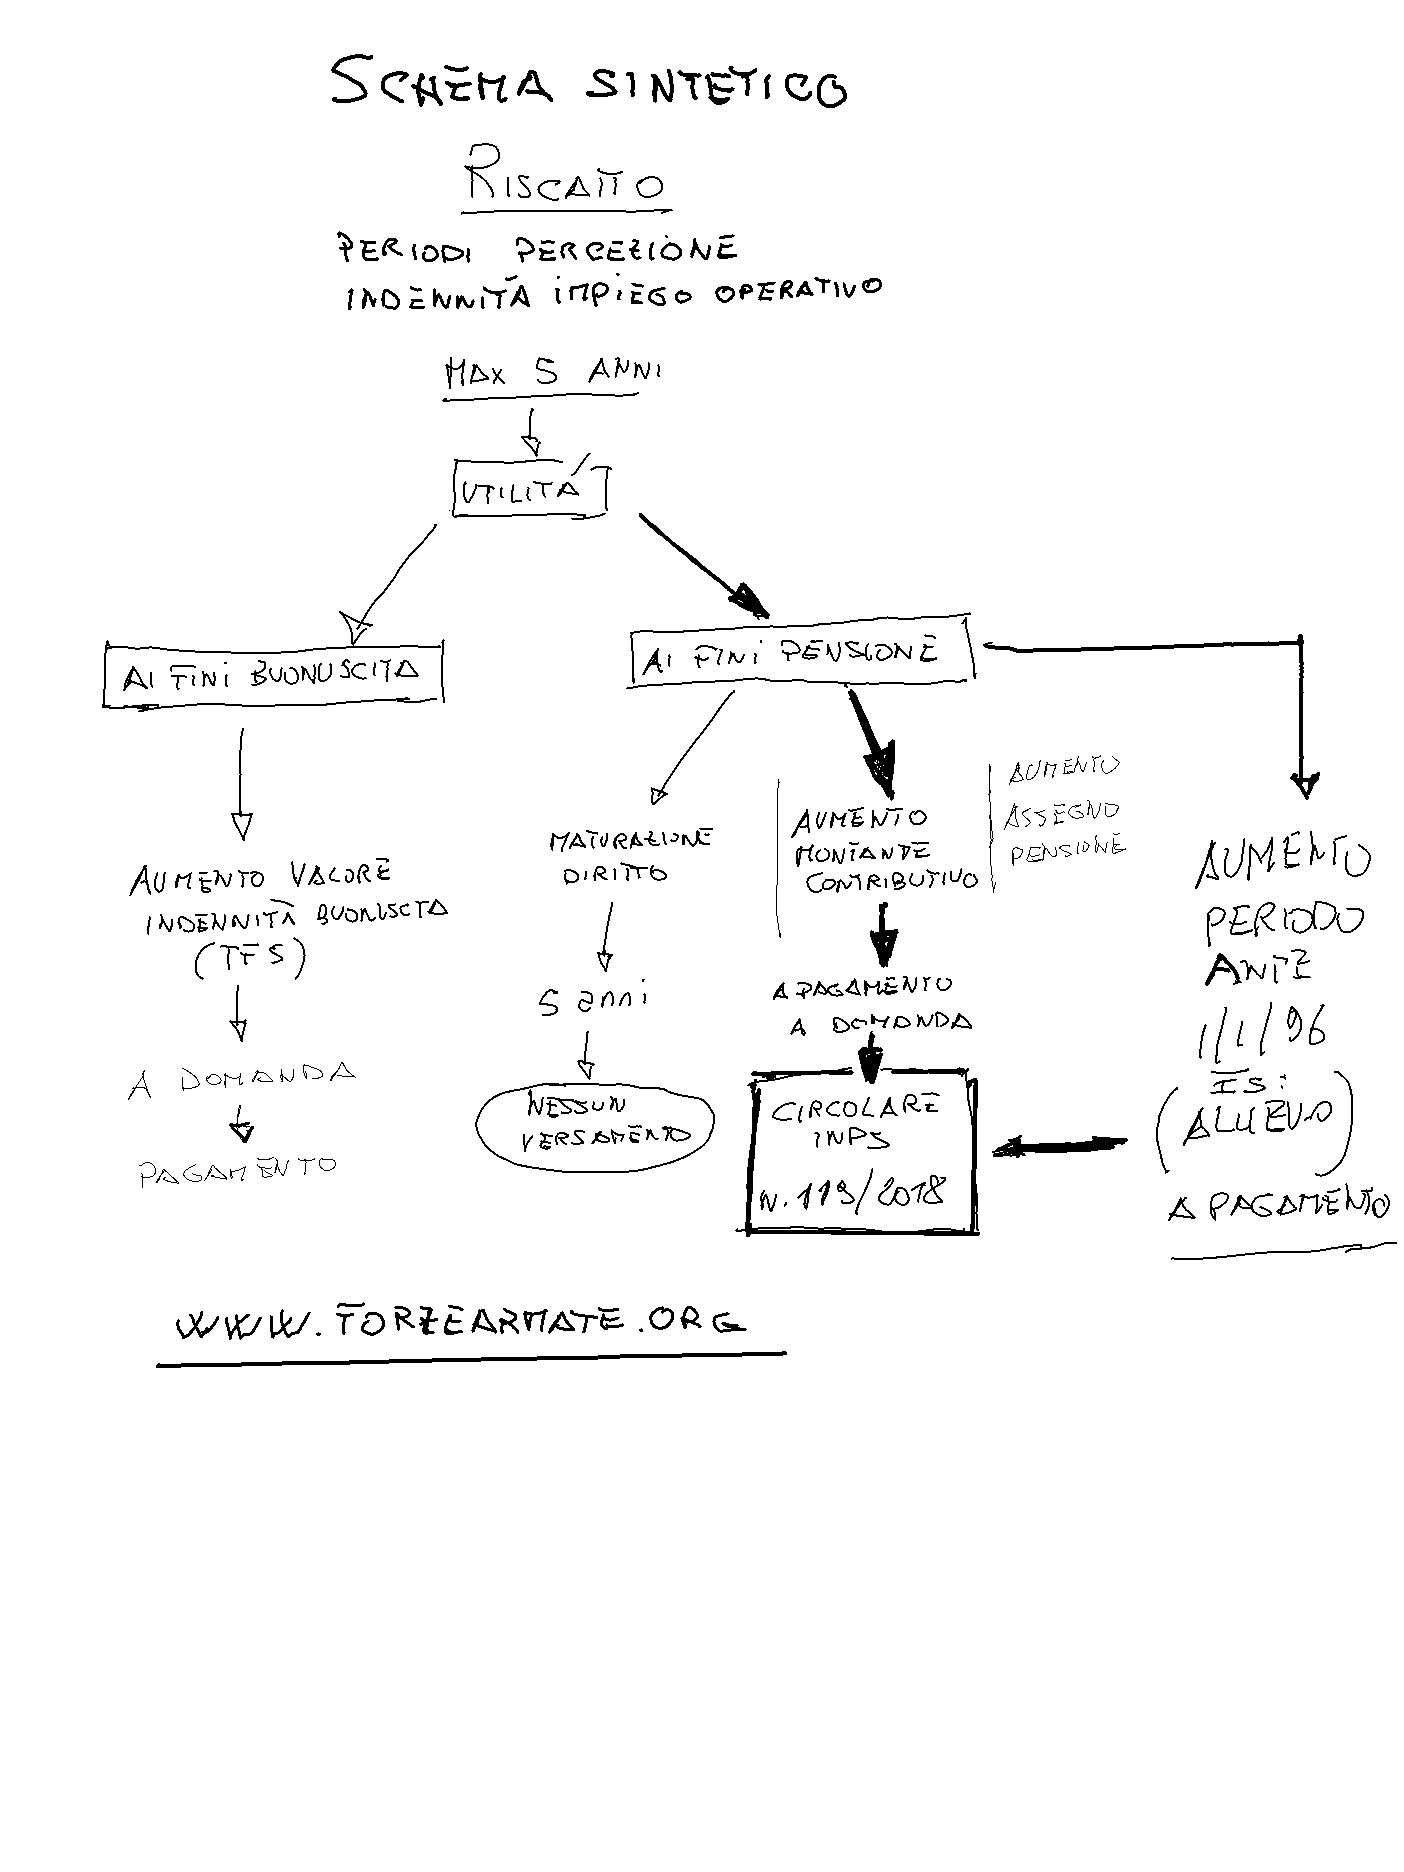 SCHEMA SINTETICO
RISCATTO
PERIODI PERCEZIONE
INDENNITÀ IMPIEGO OPERATIVO
MAX 5 ANNI
UTILITÀ
AI FINI BUONUSCITA
AUMENTO VALORE
INDENNITÀ BUONUSCTA
(TFS)
A DOMANDA
PAGAMENTO
AI FINI PENSIONE
MATURAZIONE
DIRITTO
5 anni
NESSUN
VERSAMENTO
AUMENTO
MONTANTE
CONTRIBUTIVO
AUMENTO
ASSEGNO
PENSIONE
A PAGAMENTO
A DOMANDA
CIRCOLARE
INPS
N. 119/2018
AUMENTO
PERIODO
ANTE
1/1/96
ES:
(ALLIEVO)
A PAGAMENTO
WWW.FORZEARMATE.ORG